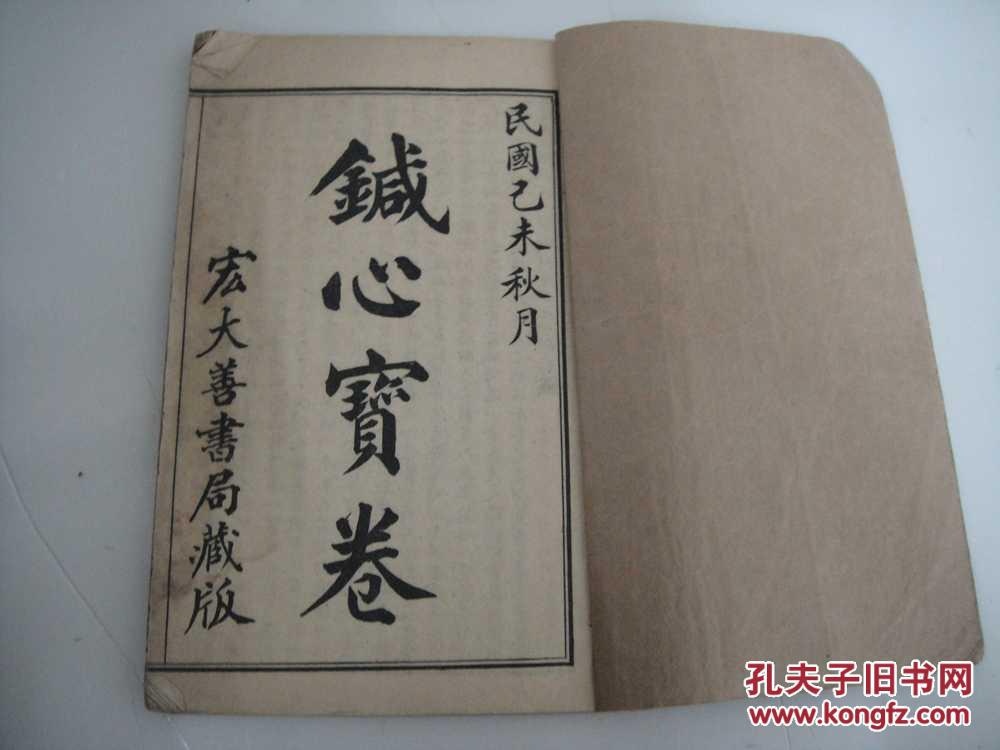 民國己未秋月
鍼心寶卷
宏大善書局藏版
孔夫子旧书网
www.kongfz.com